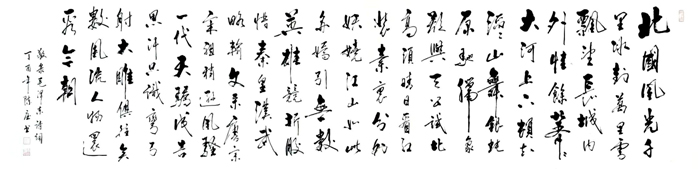 北國風光千
里冰封萬里雪
飄望長城內
外惟餘莽莽
大河上下頓失
滔滔山舞銀蛇
原馳蠟象
欲與天公試比
高須晴日看紅
裝素裹分外
妖嬈江山如此
多嬌引無數
英雄競折腰
惜秦皇漢武
略輸文采唐宗
宋祖稍遜風騷
一代天驕成吉
思汗只識彎弓
射大雕俱往矣
數風流人物還
看今朝
敬录毛泽东诗词
丁酉年書